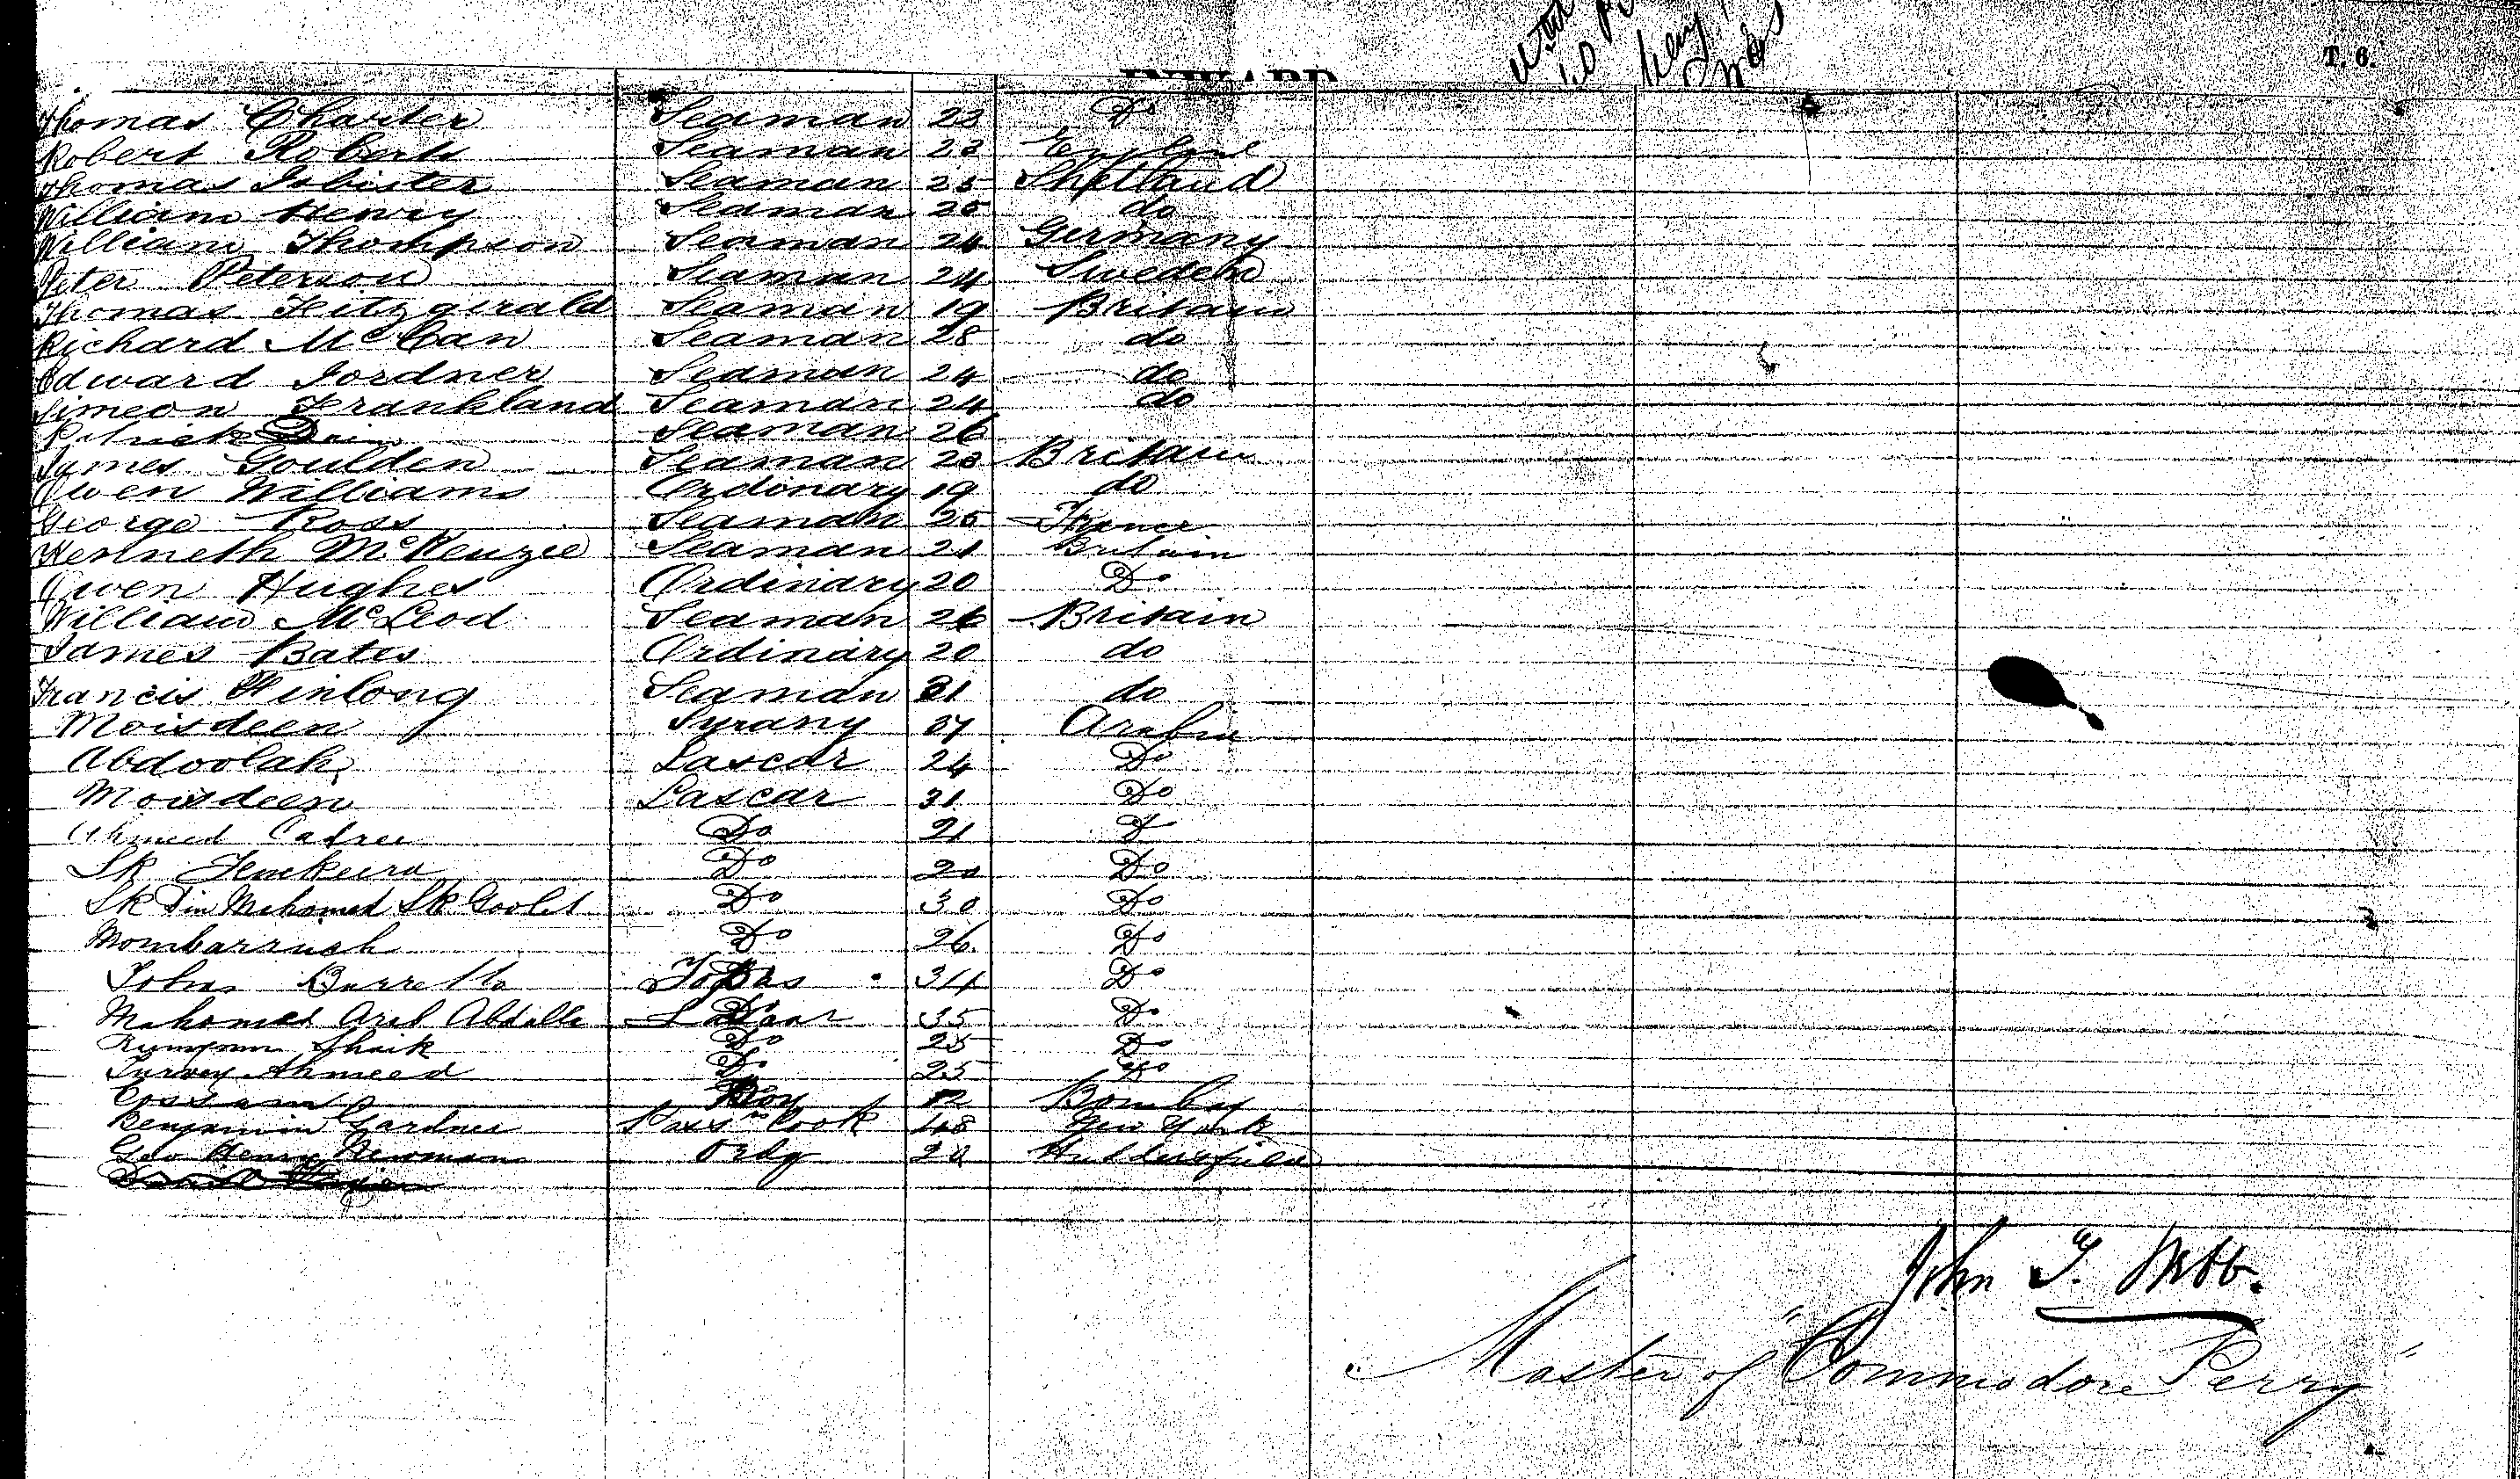 T. 6.
INWARD
Thomas Charter Seaman 23 Do
Robert Roberts Seaman 23 England
Thomas Isbister Seaman 25 Shetland
William Henry Seaman 25 do
William Thompson Seaman 24 Germany
Peter Peterson Seaman 24 Sweden
Thomas Fitzgirald Seaman 19 Britain
Richard McCan Seaman 28 do
Edward Jordner Seaman 24 do
Simeon Frankland Seaman 24 do
Patrick Seaman 26
James Goulden Seaman 23 Britain
Owen Williams Ordinary 19 do
George Ross Seaman 25 France
Kenneth McKenzie Seaman 21 Britain
Owen Hughes Ordinary 20 Do
William McLeod Seaman 26 Britain
James Bates Ordinary 20 do
Francis Seaman 31 do
Moisdeen Syrang 37 Arabia
Abdoolah Lascar 24 Do
Moisdeen Lascar 31 Do
Ahmeed Do 21 Do
Sk Do 20 Do
Sk Din Mahomed Sk Goolet Do 30 Do
Mombarruck Do 26 Do
John Barretto Topas 34 Do
Mahomed Abdilla Lascar 35 Do
Shaik Do 25 Do
Ahmeed Do 25 Do
Cossam Boy 12 Bombay
Benjamin Gardner Passr Cook 48 New York
Geo Henry Newman Ordy 20 Huddersfield
John T. Webb.
Master of "Commodore Perry"